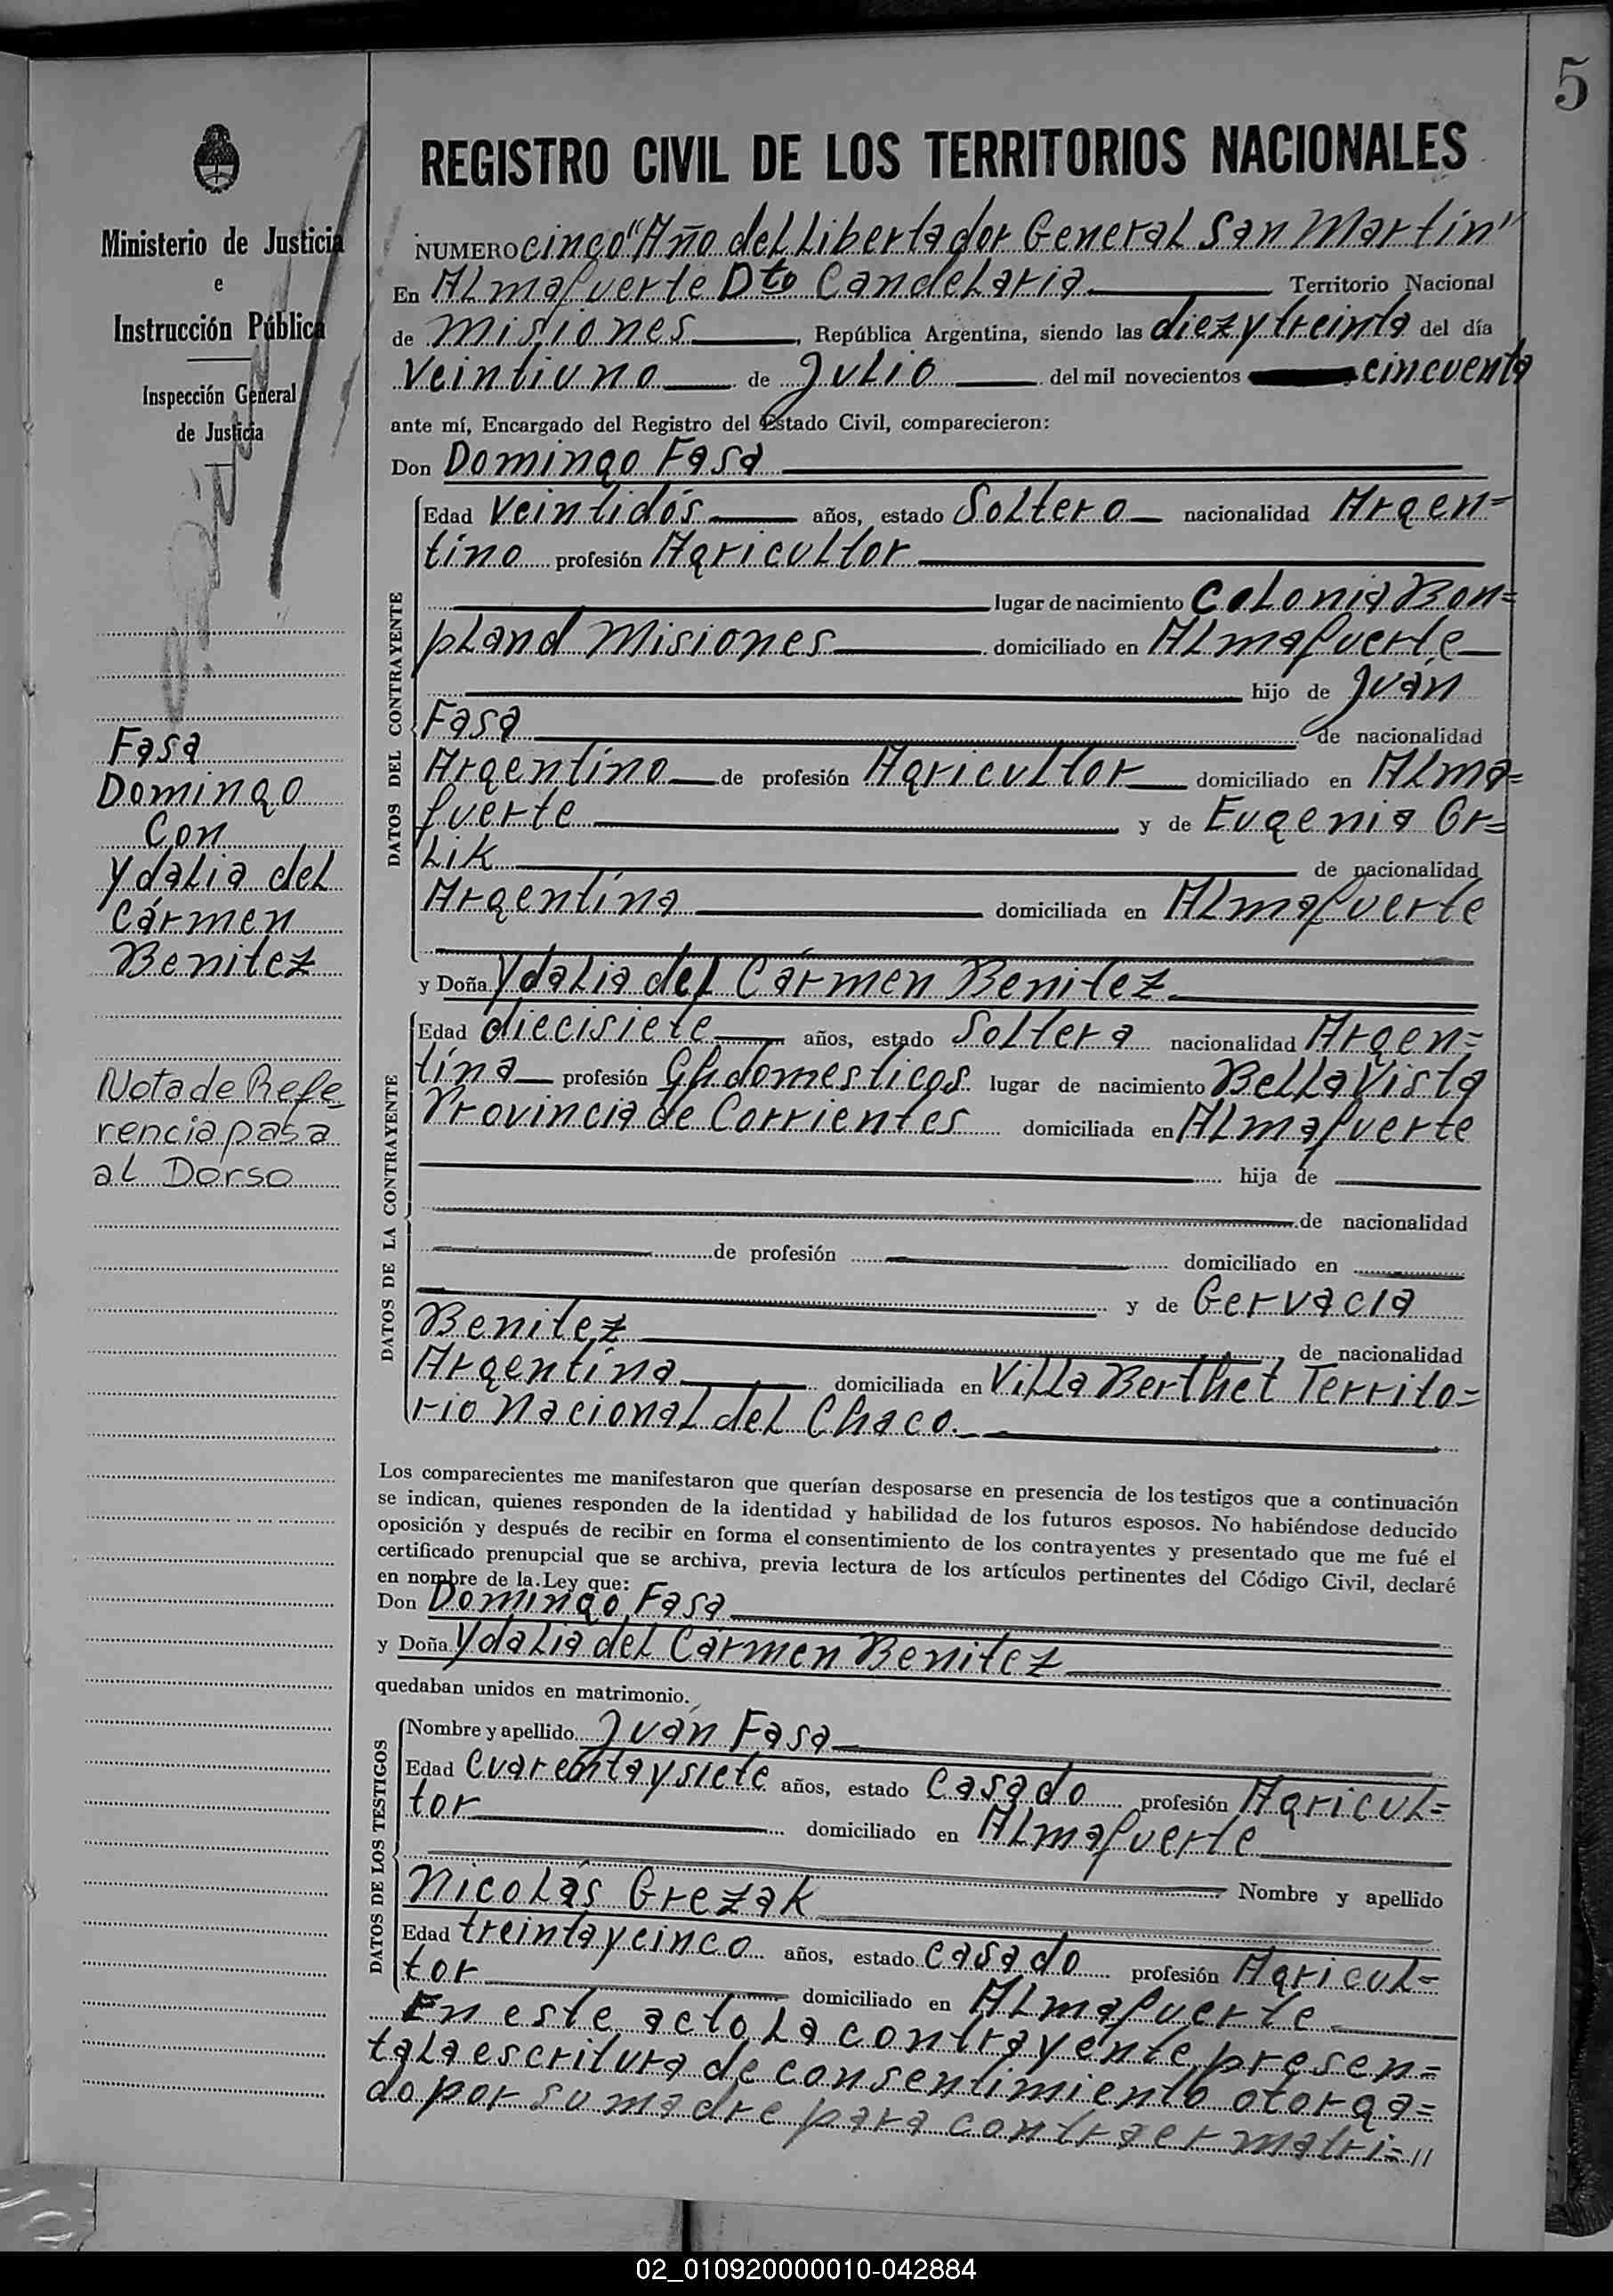 5
REGISTRO CIVIL DE LOS TERRITORIOS NACIONALES
Ministerio de Justicia
e
Instrucción Pública
Inspección General
de Justicia
Fasa
Domingo
Con
Ydalia del
Cármen
Benitez
Nota de Refe_
rencia pasa
al Dorso
NUMERO cinco "Año del Libertador General San Martín"
En Almafuerte Dto Candelaria Territorio Nacional
de Misiones, República Argentina, siendo las diez y treinta del día
Veintiuno de Julio del mil novecientos cincuenta
ante mí, Encargado del Registro del Estado Civil, comparecieron:
Don Domingo Fasa
DATOS DEL CONTRAYENTE
Edad Veintidós años, estado Soltero nacionalidad Argen=
tino profesión Agricultor
lugar de nacimiento Colonia Bon=
pland Misiones domiciliado en Almafuerte
hijo de Juán
Fasa de nacionalidad
Argentino de profesión Agricultor domiciliado en Alma=
fuerte y de Eugenia Gr=
lik de nacionalidad
Argentina domiciliada en Almafuerte
y Doña Ydalia del Cármen Benitez
DATOS DE LA CONTRAYENTE
Edad diecisiete años, estado Soltera nacionalidad Argen=
tina profesión Qh domesticos lugar de nacimiento Bella Vista
Provincia de Corrientes domiciliada en Almafuerte
hija de
de nacionalidad
de profesión domiciliado en
y de Gervacia
Benitez de nacionalidad
Argentina domiciliada en Villa Berthet Territo=
rio Nacional del Chaco.
Los comparecientes me manifestaron que querían desposarse en presencia de los testigos que a continuación
se indican, quienes responden de la identidad y habilidad de los futuros esposos. No habiéndose deducido
oposición y después de recibir en forma el consentimiento de los contrayentes y presentado que me fué el
certificado prenupcial que se archiva, previa lectura de los artículos pertinentes del Código Civil, declaré
en nombre de la Ley que:
Don Domingo Fasa
y Doña Ydalia del Cármen Benitez
quedaban unidos en matrimonio.
DATOS DE LOS TESTIGOS
Nombre y apellido Juán Fasa
Edad cuarenta y siete años, estado Casado profesión Agricul=
tor domiciliado en Almafuerte
Nombre y apellido
Nicolás Grezak
Edad treinta y cinco años, estado Casado profesión Agricul=
tor domiciliado en Almafuerte
En este acto la contrayente presen=
ta la escritura de consentimiento otorga=
do por su madre para contraer matri=//
02_010920000010-042884